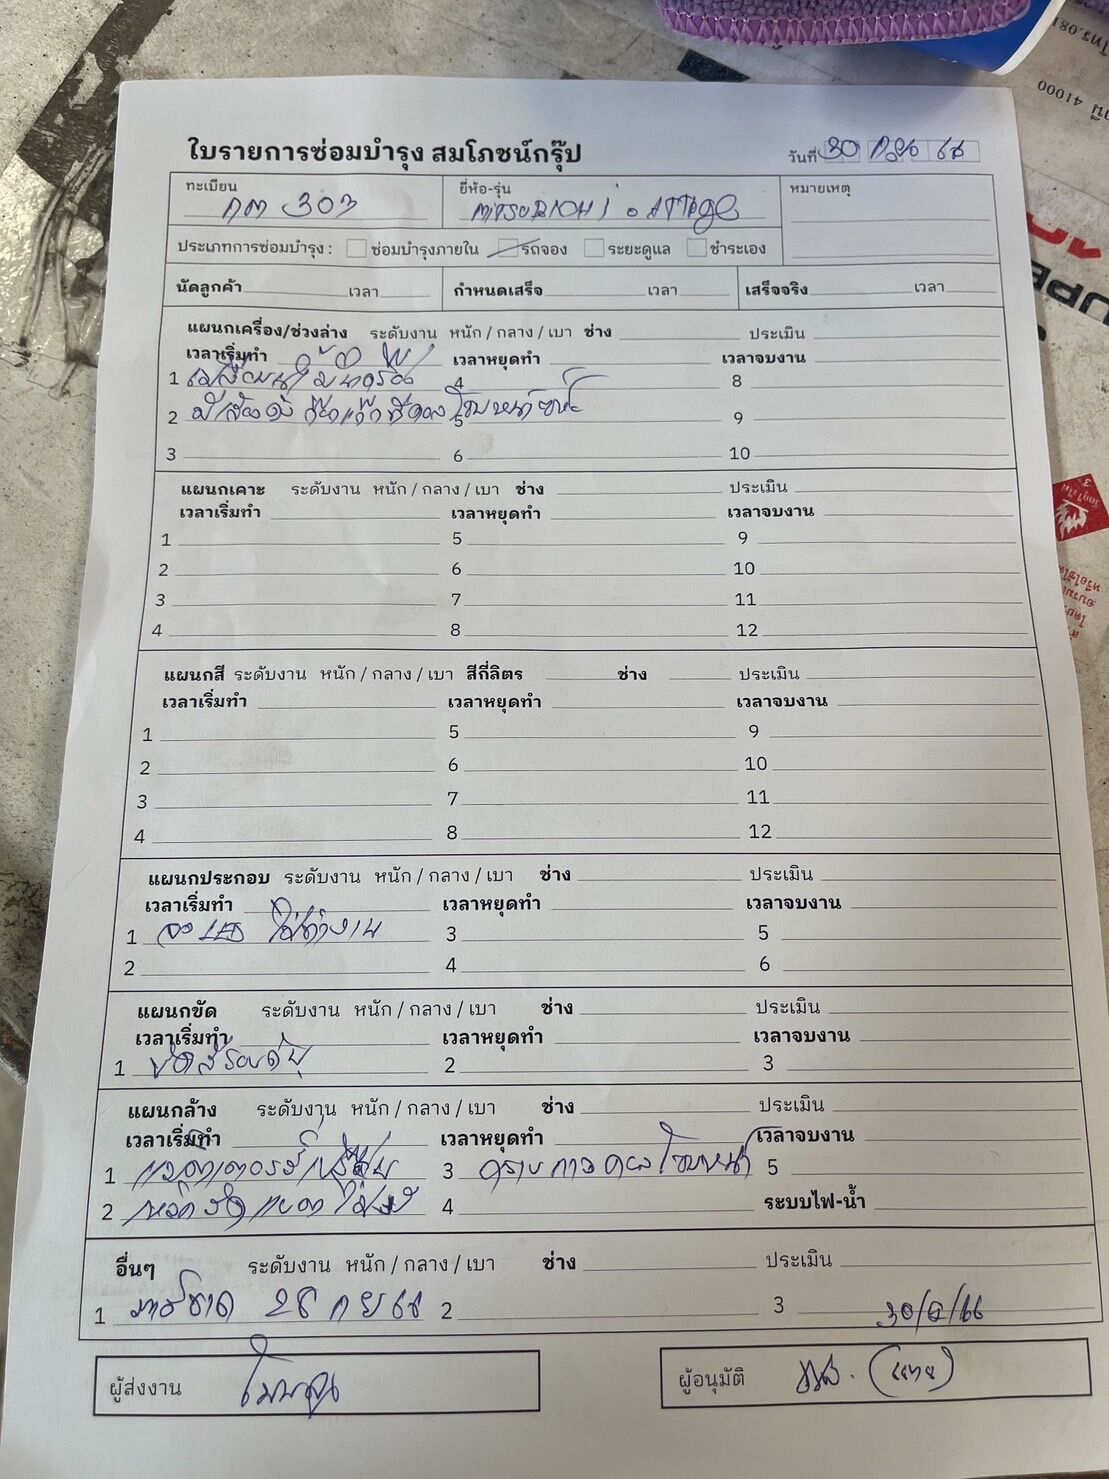 ใบรายการซ่อมบำรุง สมโภชน์กรุ๊ป
วันที่ 30 กย 66
ทะเบียน กต 303
ยี่ห้อ-รุ่น MITSUBICHI ATTAGE
หมายเหตุ
ประเภทการซ่อมบำรุง : ซ่อมบำรุงภายใน รถจอง ระยะดูแล ชำระเอง
นัดลูกค้า เวลา กำหนดเสร็จ เวลา เสร็จจริง เวลา
แผนกเครื่อง/ช่วงล่าง ระดับงาน หนัก / กลาง / เบา ช่าง ประเมิน
เวลาเริ่มทำ เวลาหยุดทำ เวลาจบงาน
1 เปลี่ยนน้ำมันเครื่อง 4 8
2 มีเสียงดัง 5 9
3 6 10
แผนกเคาะ ระดับงาน หนัก / กลาง / เบา ช่าง ประเมิน
เวลาเริ่มทำ เวลาหยุดทำ เวลาจบงาน
1 5 9
2 6 10
3 7 11
4 8 12
แผนกสี ระดับงาน หนัก / กลาง / เบา สีกี่ลิตร ช่าง ประเมิน
เวลาเริ่มทำ เวลาหยุดทำ เวลาจบงาน
1 5 9
2 6 10
3 7 11
4 8 12
แผนกประกอบ ระดับงาน หนัก / กลาง / เบา ช่าง ประเมิน
เวลาเริ่มทำ เวลาหยุดทำ เวลาจบงาน
1 จอ LED ไม่ทำงาน 3 5
2 4 6
แผนกขัด ระดับงาน หนัก / กลาง / เบา ช่าง ประเมิน
เวลาเริ่มทำ เวลาหยุดทำ เวลาจบงาน
1 ขัดสีรอบคัน 2 3
แผนกล้าง ระดับงาน หนัก / กลาง / เบา ช่าง ประเมิน
เวลาเริ่มทำ เวลาหยุดทำ เวลาจบงาน
1 3 คราบกาว 5
2 4 ระบบไฟ-น้ำ
อื่นๆ ระดับงาน หนัก / กลาง / เบา ช่าง ประเมิน
1 ภาษีขาด 26 กย 66 2 3 30/9/66
ผู้ส่งงาน
ผู้อนุมัติ
41000
โทร.081